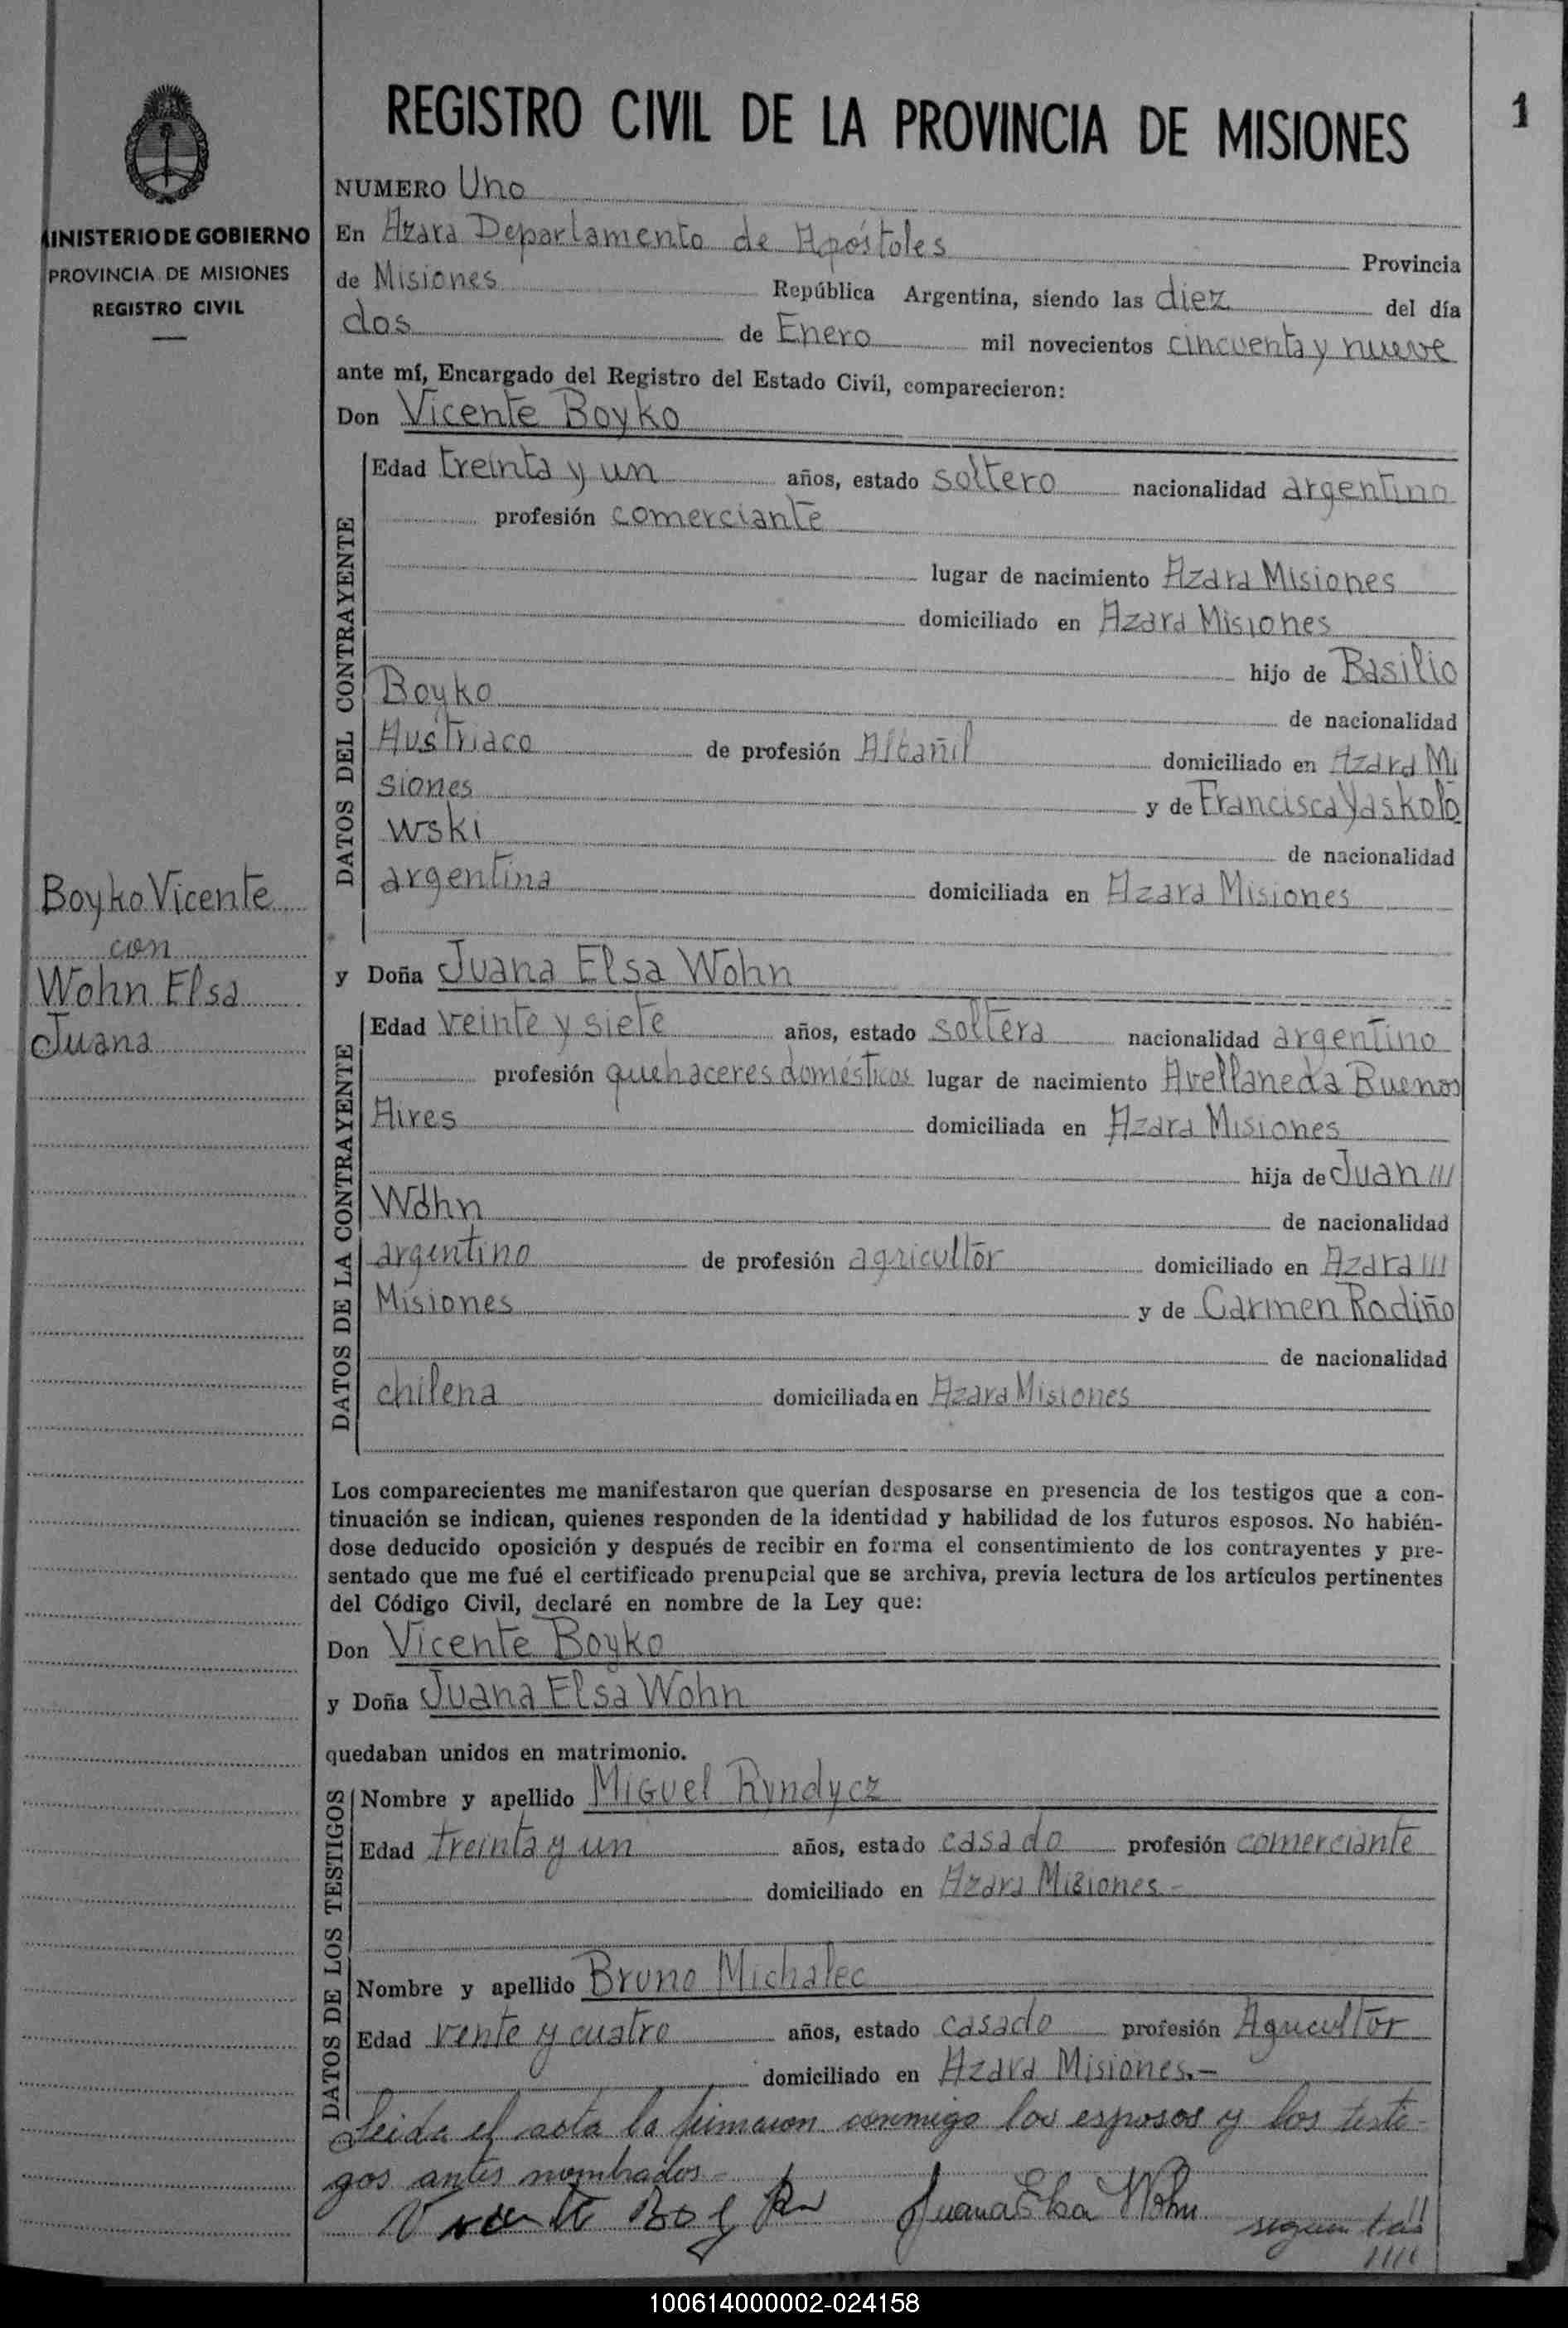 REGISTRO CIVIL DE LA PROVINCIA DE MISIONES
1
MINISTERIO DE GOBIERNO
PROVINCIA DE MISIONES
REGISTRO CIVIL
Boyko Vicente
con
Wohn Elsa
Juana
NUMERO Uno
En Azara Departamento de Apóstoles Provincia
de Misiones República Argentina, siendo las diez del día
dos de Enero mil novecientos cincuenta y nueve
ante mí, Encargado del Registro del Estado Civil, comparecieron:
Don Vicente Boyko
DATOS DEL CONTRAYENTE
Edad treinta y un años, estado soltero nacionalidad argentino
profesión comerciante
lugar de nacimiento Azara Misiones
domiciliado en Azara Misiones
hijo de Basilio
Boyko de nacionalidad
Austriaco de profesión Albañil domiciliado en Azara Mi
siones y de Francisca Yaskolo
wski de nacionalidad
argentina domiciliada en Azara Misiones
y Doña Juana Elsa Wohn
DATOS DE LA CONTRAYENTE
Edad veinte y siete años, estado soltera nacionalidad argentino
profesión quehaceres domésticos lugar de nacimiento Avellaneda Buenos
Aires domiciliada en Azara Misiones
hija de Juan ///
Wohn de nacionalidad
argentino de profesión agricultor domiciliado en Azara ///
Misiones y de Carmen Rodiño
de nacionalidad
chilena domiciliada en Azara Misiones
Los comparecientes me manifestaron que querían desposarse en presencia de los testigos que a con-
tinuación se indican, quienes responden de la identidad y habilidad de los futuros esposos. No habién-
dose deducido oposición y después de recibir en forma el consentimiento de los contrayentes y pre-
sentado que me fué el certificado prenupcial que se archiva, previa lectura de los artículos pertinentes
del Código Civil, declaré en nombre de la Ley que:
Don Vicente Boyko
y Doña Juana Elsa Wohn
quedaban unidos en matrimonio.
DATOS DE LOS TESTIGOS
Nombre y apellido Miguel Ryndycz
Edad treinta y un años, estado casado profesión comerciante
domiciliado en Azara Misiones -
Nombre y apellido Bruno Michalec
Edad vente y cuatro años, estado casado profesión Agricultor
domiciliado en Azara Misiones.-
Leida el acta la firmaron conmigo los esposos y los testi-
gos antes nombrados -
Vicente Boyko Juana Elsa Wohn siguen las //
////
100614000002-024158